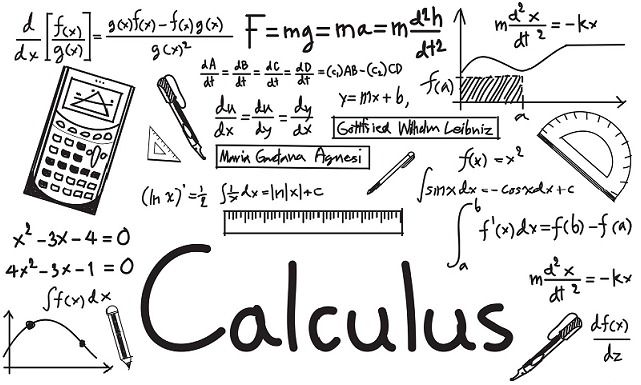 d/dx [f(x)/g(x)] = g(x)f(x) - f(x)g(x) / g(x)²
F = mg = ma = m d²h/dt²
m d²x/dt² = -kx
dA/dt = dB/dt = dC/dt = dD/dt = (c₁)AB - (c₂)CD
y = mx + b,
f(a)
a
du/dx = du/dy = dy/dx
Gottfried Wilhelm Leibniz
Maria Gaetana Agnesi
f(x) = x²
(ln x)' = 1/2
∫ 1/x dx = ln|x| + c
∫ sinxdx = -cosxdx + c
∫ₐᵇ f'(x) dx = f(b) - f(a)
x² - 3x - 4 = 0
4x² - 3x - 1 = 0
m d²x/dt² = -kx
∫ f(x) dx
Calculus
df(x)/dz